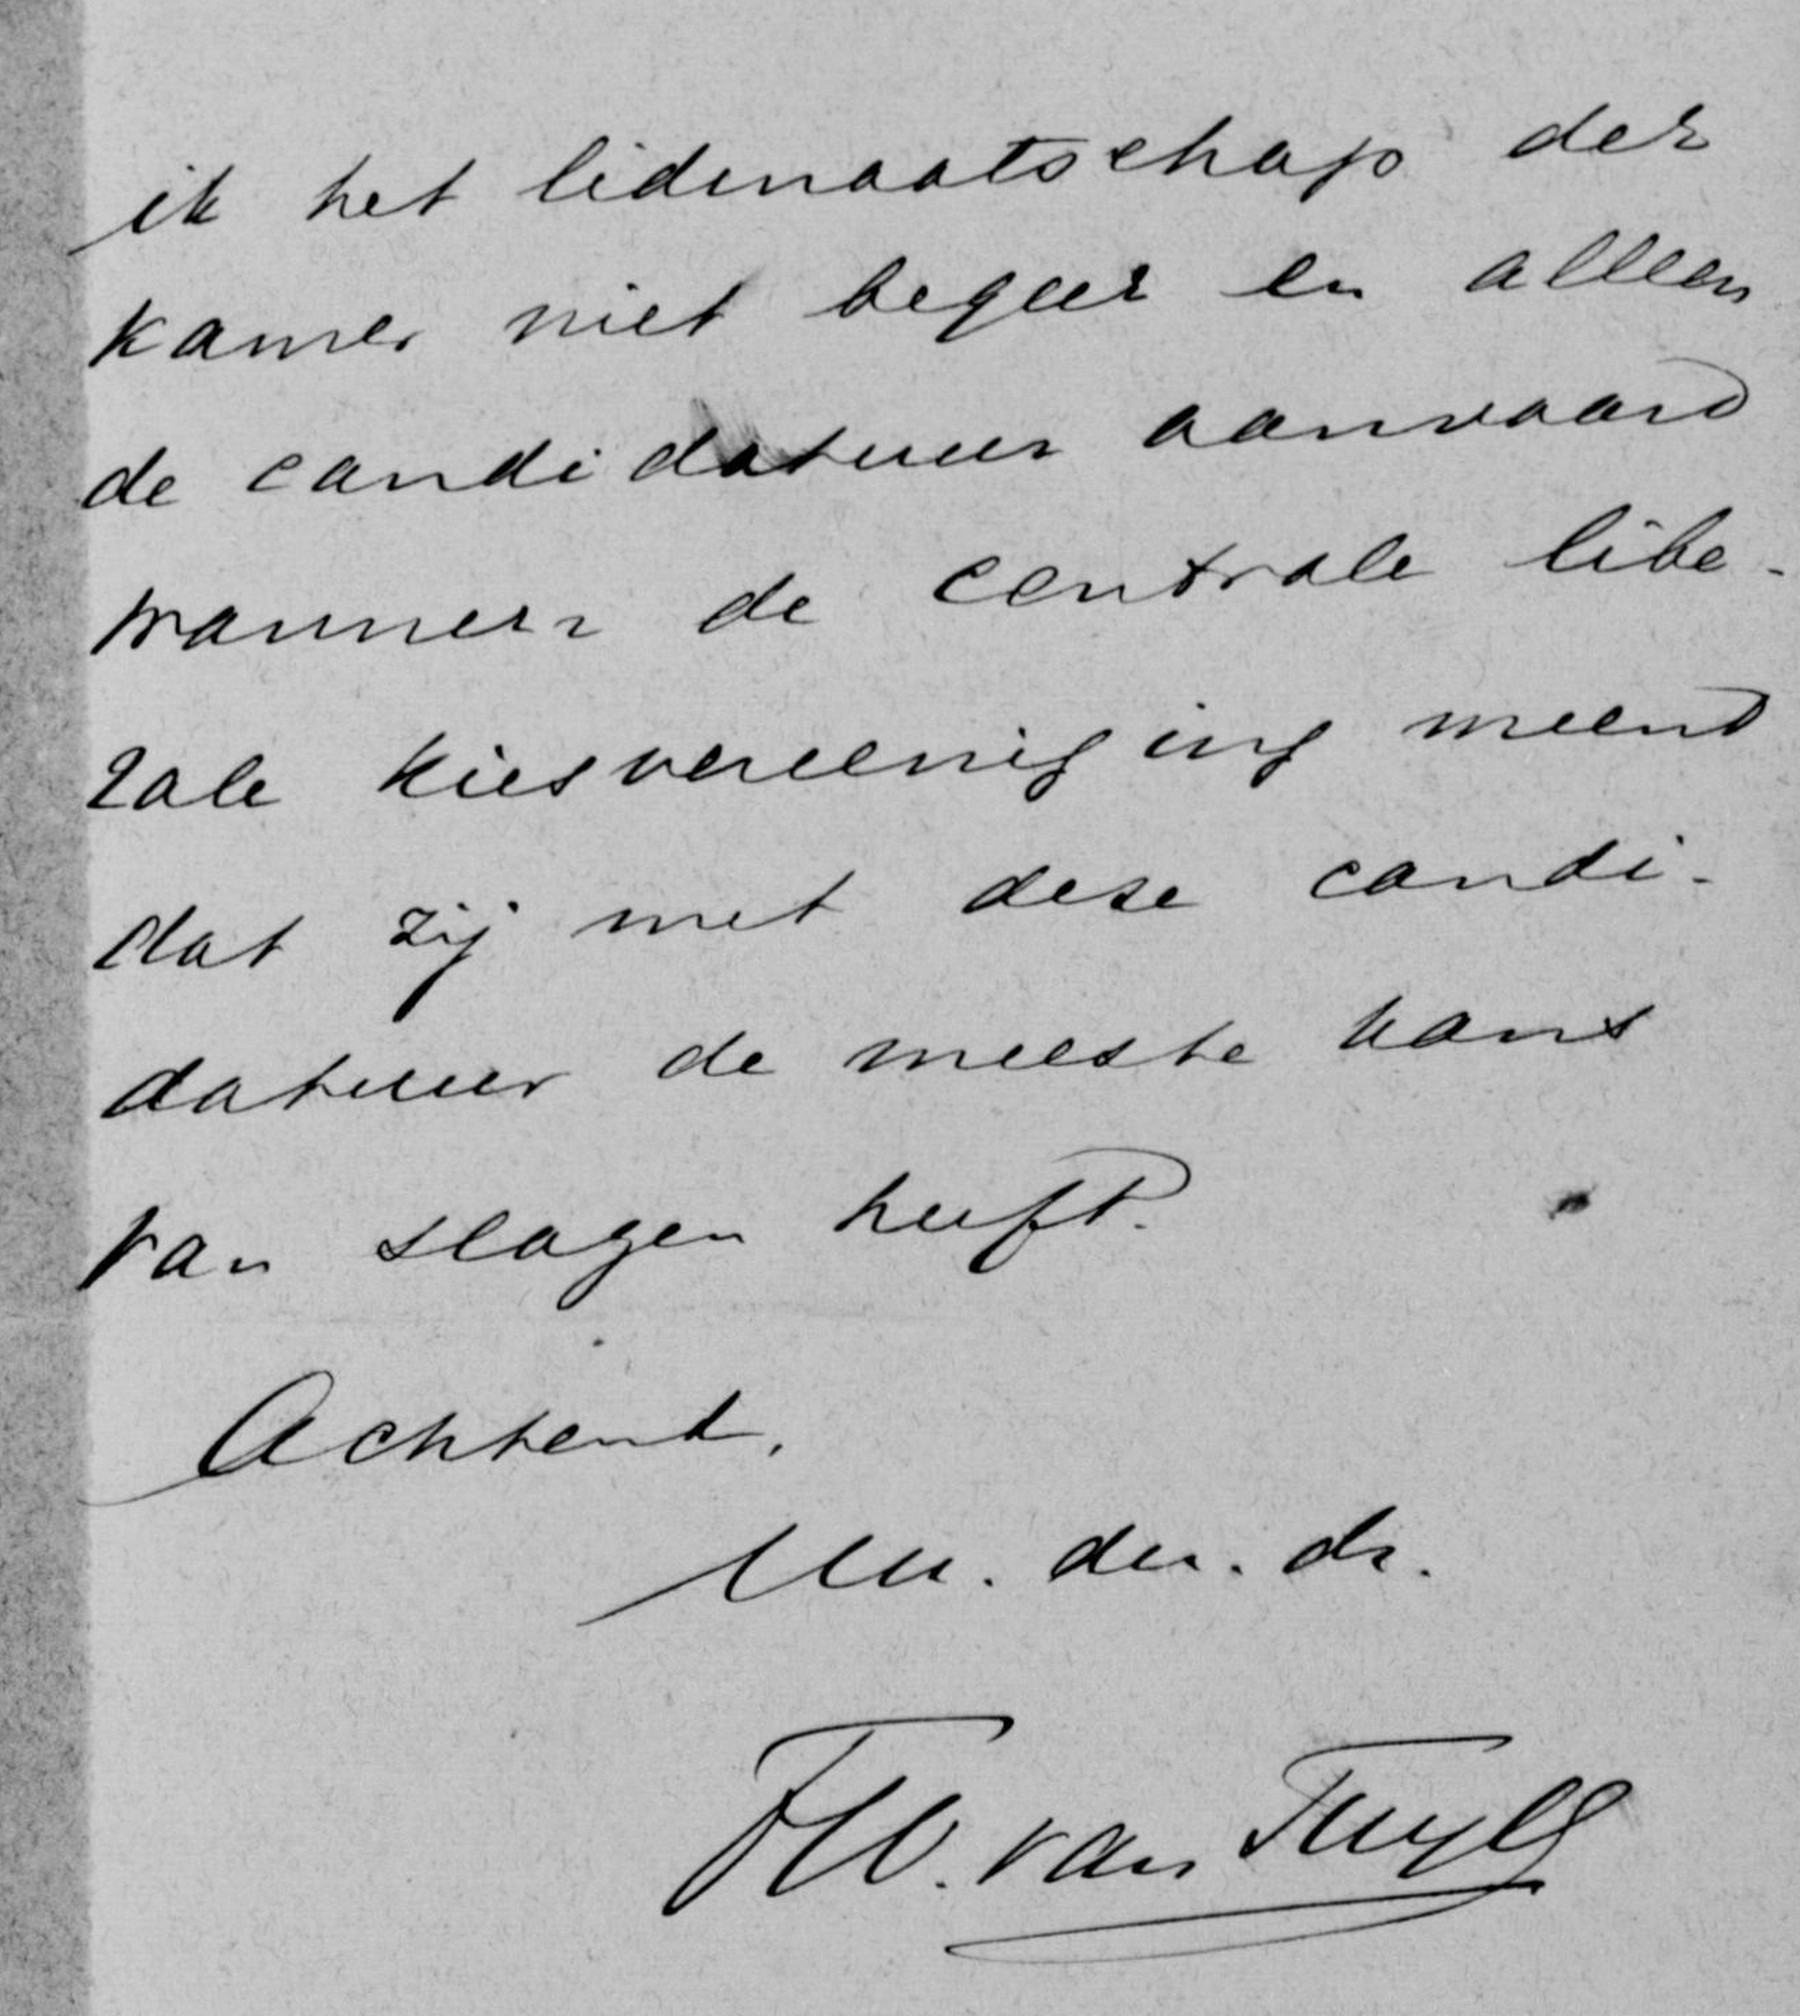 ik het lidmaatschap der
kamer niet begeer en alleen
de candidatuur aanvaard
wanneer de centrale libe-
rale kiesvereeniging meend
dat zij met deze candi-
datuur de meeste kans
van slagen heeft.
Achtend,
Uw. dw. dr.
FW. van Tuyll